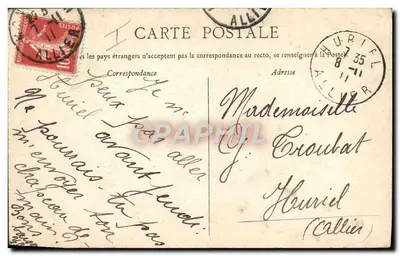 CARTE POSTALE
les pays étrangers n'acceptent pas la correspondance au recto, se renseigner à la Poste
Correspondance
Adresse
ALLIER
ALLIER
HURIEL
7 35
8 -11
11
ALLIER
Je ne
peux pas aller
Huriel avant jeudi.
Ne pourrais-tu pas
m'envoyer ton
chapeau de
main
Mademoiselle
G. Troubat
Huriel
(Allier)
CPARAMA.COM